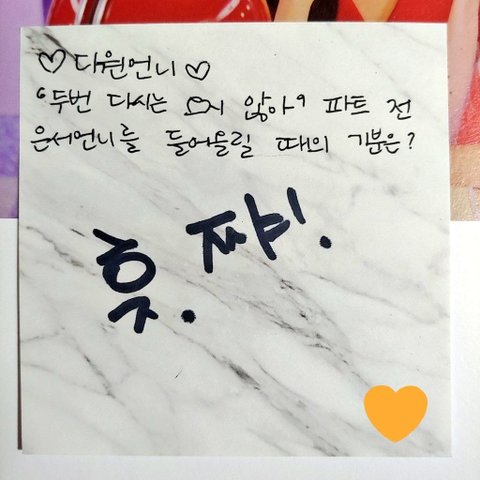 ♡ 다원언니 ♡
'두번 다시는 오지 않아' 파트 전
은서언니를 들어올릴 때의 기분은?
흣. 짜!.